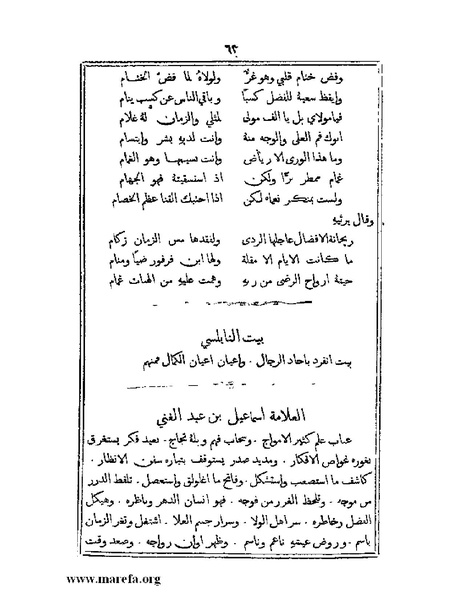 ٦٢
وفض ختام قلبي وهو غرٌّ ولولاه لما فض الختام
وايقظ سعيهُ للفضل كسبًا وباقي الناس عن كسب ينام
فيامولاي بل يا الف مولى لمثلي والزمان لهُ غلام
ابوك فم العلى والوجه منهُ وانت لديهِ بشر وابتسام
وما هذا الورى الا رياض وانت نسيمها وهو الغمام
غمام ممطر برًّا ولكن اذ استسقيتهُ فهو الجهام
ولست بمنكر نعماه لكن اذا احنيك القنا عظم الخصام
وقال يرثيهِ
ريحانة الافضال عاجلها الردى ولفقدها مس الزمان زكام
ما كانت الايام الا مقلة ولها ابن فرفور ضيًا ومنام
حيتهُ ارواح الرضى من ربهِ وهمت عليهِ من الهبات غمام
بيت النابلسي
بيت انفرد باحاد الرجال . واعيان اعيان الكمال ممنهم
العلامة اسماعيل بن عبد الغني
عباب علم كثير الامواج . وسحاب فهم وبلهُ ثجاج . بعيد فكر يستغرق
بغوره غواص الافكار . ومديد صدر يستوقف بتياره سفن الانظار .
كاشف ما استصعب واستشكل . وفاتح ما اغلولق واستعصل . تلقط الدرر
من موجه . وتلحظ الغرر من فوجه . فهو انسان الدهر وناظره . وهيكل
الفضل وخاطره . سر اهل الولا . وسرار جسم العلا . اشتغل وثغر الزمان
باسم . وروض عيشهِ ناعم وناسم . وظهر اوان رواجه . وصعد وقت
www.marefa.org